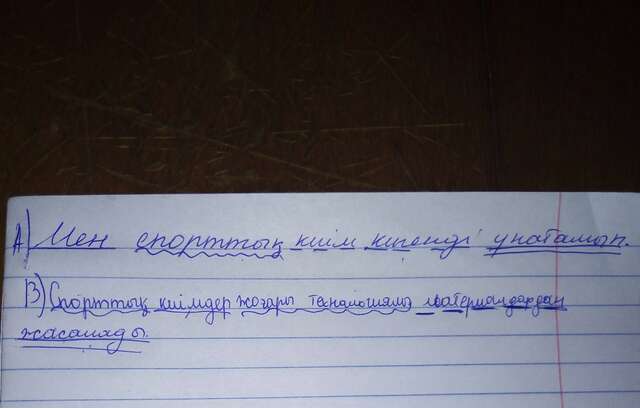 А) Мен спорттық киім кигенді ұнатамын.
В) Спорттық киімдер жоғары технологиялы материалдардан
жасалады.